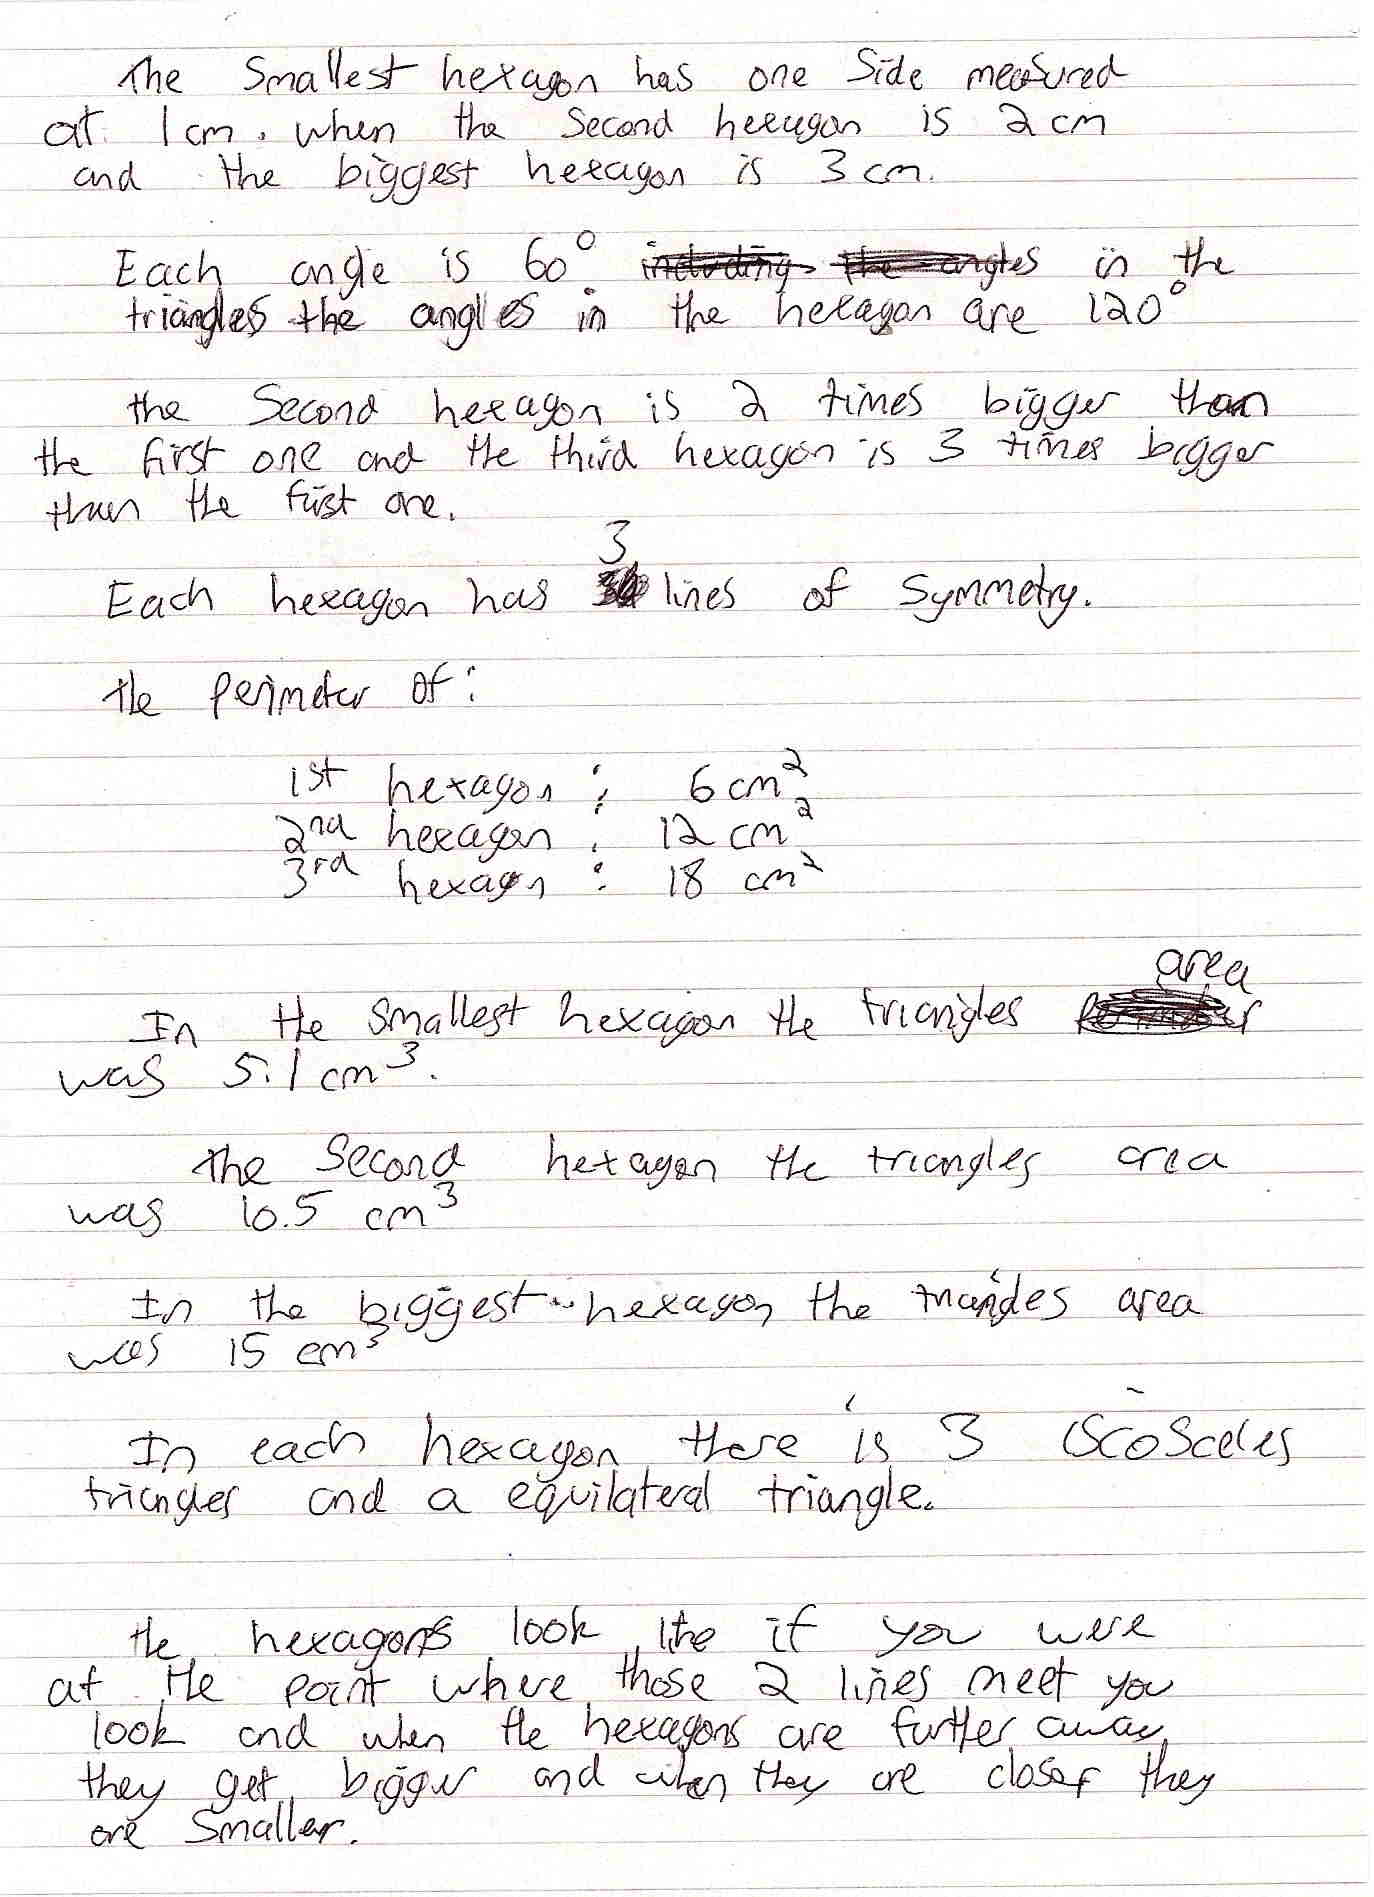 The Smallest hexagon has one Side measured
at 1cm. when the Second hexagon is 2cm
and the biggest hexagon is 3cm.
Each angle is 60° including the angles in the
triangles the angles in the hexagon are 120°
the Second hexagon is 2 times bigger than
the first one and the third hexagon is 3 times bigger
than the first one.
3
Each hexagon has lines of Symmetry.
the perimeter of:
1st hexagon : 6cm²
2nd hexagon : 12 cm²
3rd hexagon : 18 cm²
area
In the smallest hexagon the triangles
was 5.1cm³.
The Second hexagon the triangles area
was 10.5 cm³
In the biggest hexagon the triangles area
was 15 cm³
In each hexagon there is 3 iscosceles
triangles and a equilateral triangle.
the hexagons look like if you were
at the point where those 2 lines meet you
look and when the hexagons are further away
they get bigger and when they are closer they
are smaller.